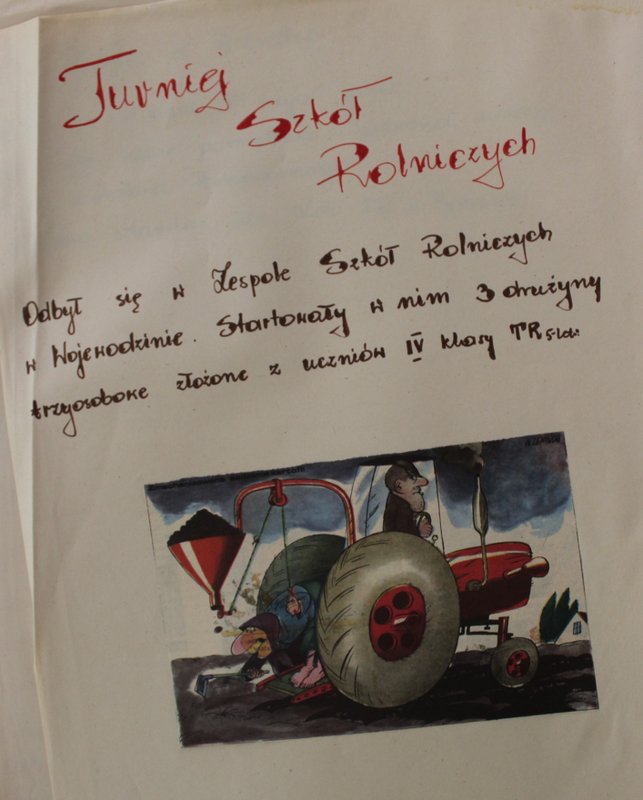 Turniej
Szkół
Rolniczych
Odbył się w Zespole Szkół Rolniczych
w Wojewodzinie. Startowały w nim 3 drużyny
trzyosobowe złożone z uczniów IV klasy TR